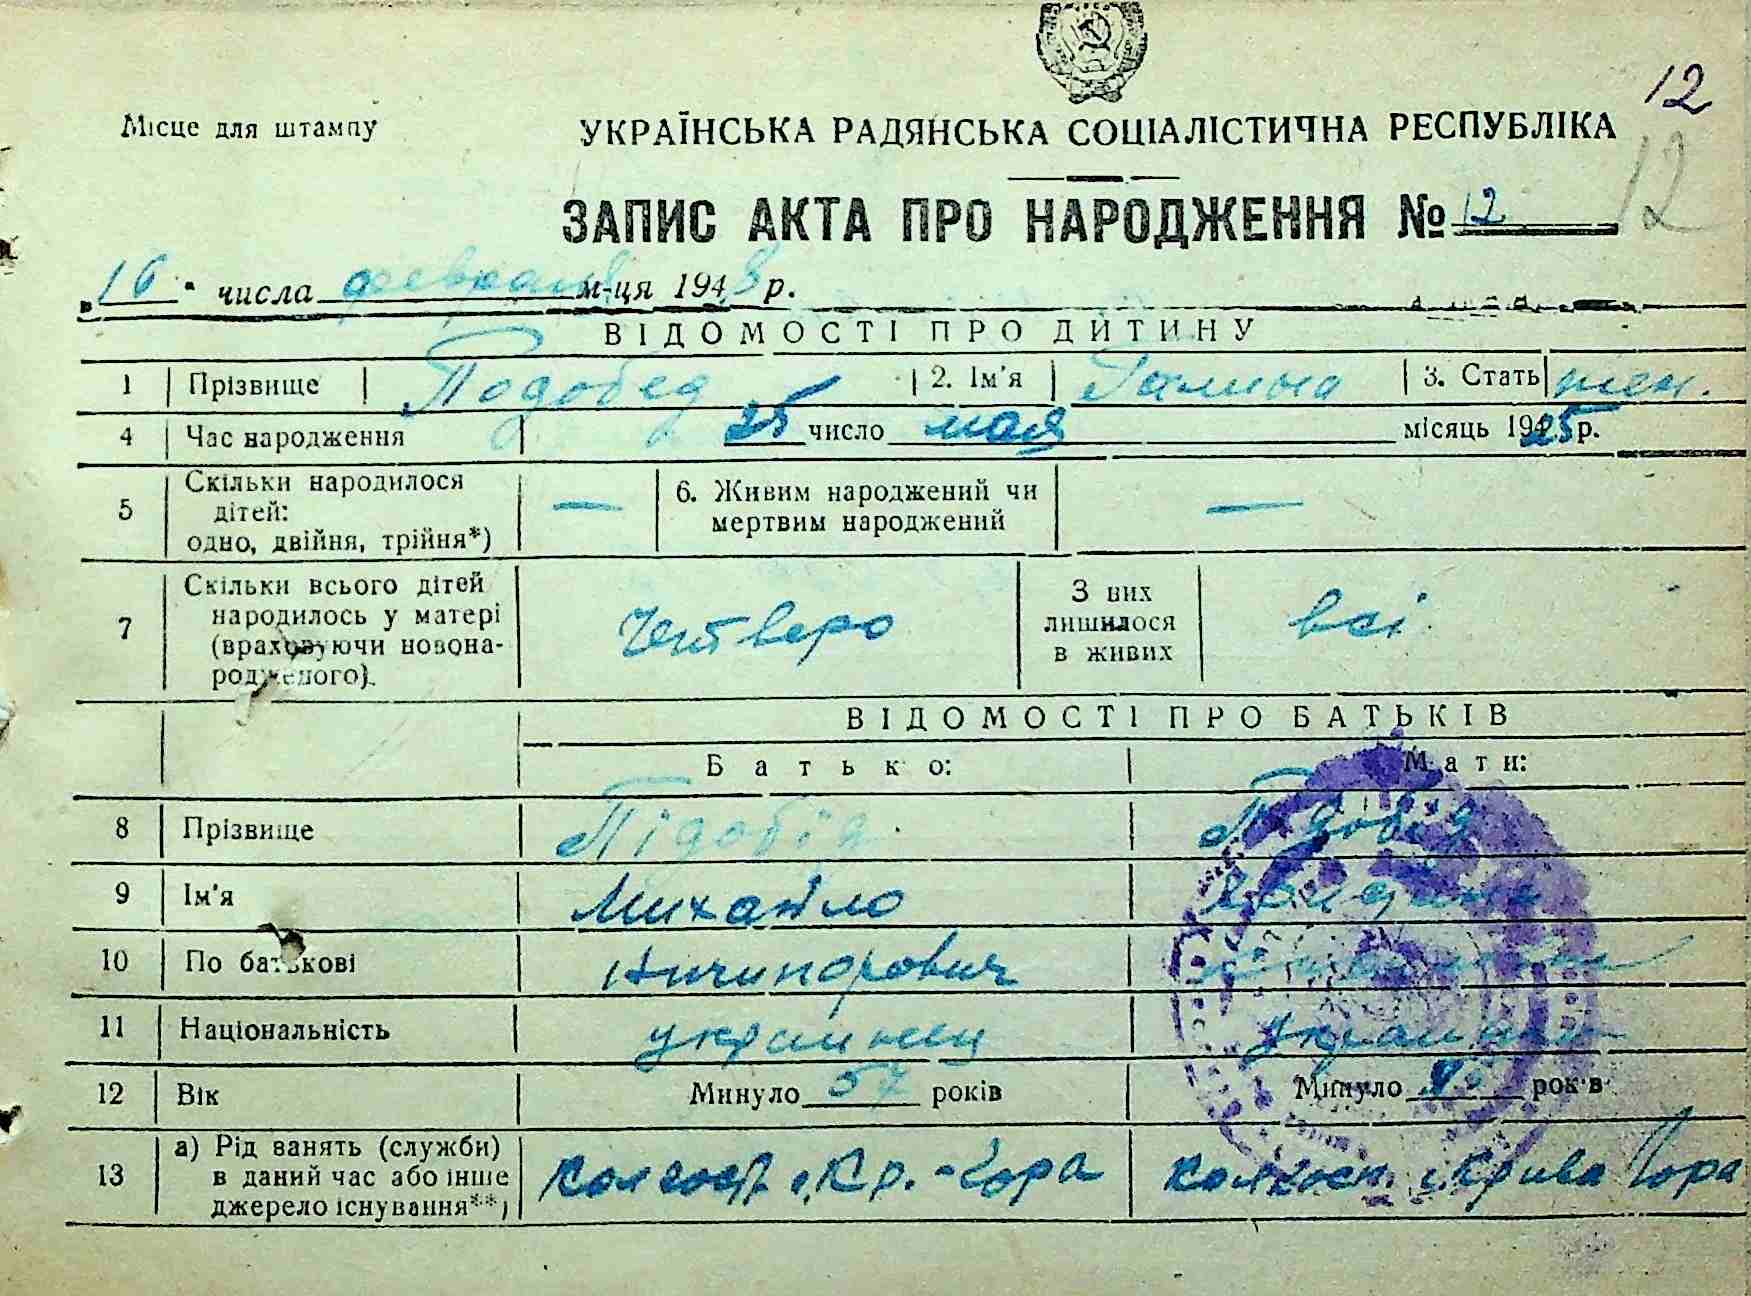 12
Місце для штампу
УКРАЇНСЬКА РАДЯНСЬКА СОЦІАЛІСТИЧНА РЕСПУБЛІКА
12
ЗАПИС АКТА ПРО НАРОДЖЕННЯ № 12
„16" числа февраля м-ця 1948 р.
ВІДОМОСТІ ПРО ДИТИНУ
1 Прізвище Подобед 2. Ім'я Галина 3. Стать жен.
4 Час народження 25 число мая місяць 1925 р.
5 Скільки народилося дітей: одно, двійня, трійня*) — 6. Живим народжений чи мертвим народжений —
7 Скільки всього дітей народилось у матері (враховуючи новонародженого). Четверо З них лишилося в живих всі
ВІДОМОСТІ ПРО БАТЬКІВ
Батько: Мати:
8 Прізвище Підобід Підобід
9 Ім'я Михайло
10 По батькові Ничипорович
11 Національність украинец украинка
12 Вік Минуло 57 років Минуло років
13 а) Рід занять (служби) в даний час або інше джерело існування**) колгосп „Кр.-Гора колгосп. „Крива Гора